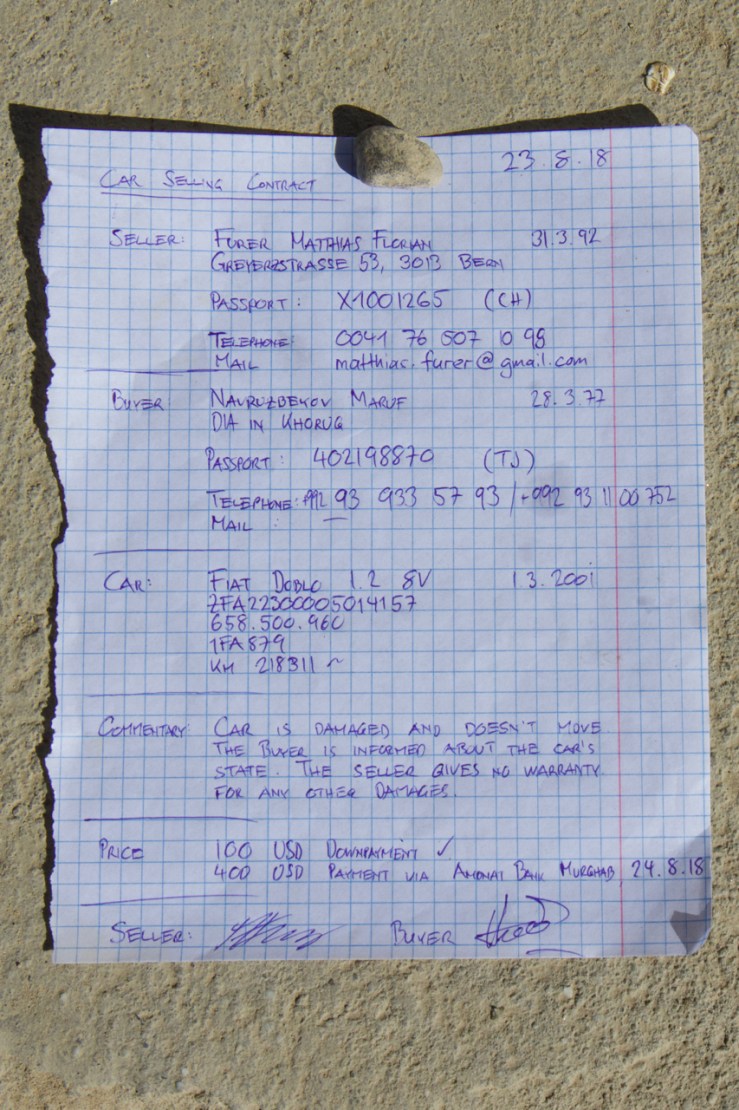 23.8.18
CAR SELLING CONTRACT
SELLER: FURER MATTHIAS FLORIAN 31.3.92
GREYERZSTRASSE 53, 3013 BERN
PASSPORT: X1001265 (CH)
TELEPHONE: 0041 76 507 10 98
MAIL matthias.furer@gmail.com
BUYER NAVRUZBEKOV MARUF 28.3.77
DIA IN KHORUG
PASSPORT: 402198870 (TJ)
TELEPHONE: +992 93 933 57 93 / +992 93 11 00 752
MAIL :
CAR: FIAT DOBLO 1.2 8V 1.3.2001
ZFA22300005014157
658.500.960
1FA879
KH 218311 ~
COMMENTARY CAR IS DAMAGED AND DOESN'T MOVE.
THE BUYER IS INFORMED ABOUT THE CAR'S
STATE. THE SELLER GIVES NO WARRANTY
FOR ANY OTHER DAMAGES.
PRICE 100 USD DOWNPAYMENT ✓
400 USD PAYMENT VIA AMONAT BANK MURGHAB, 24.8.18
SELLER: BUYER